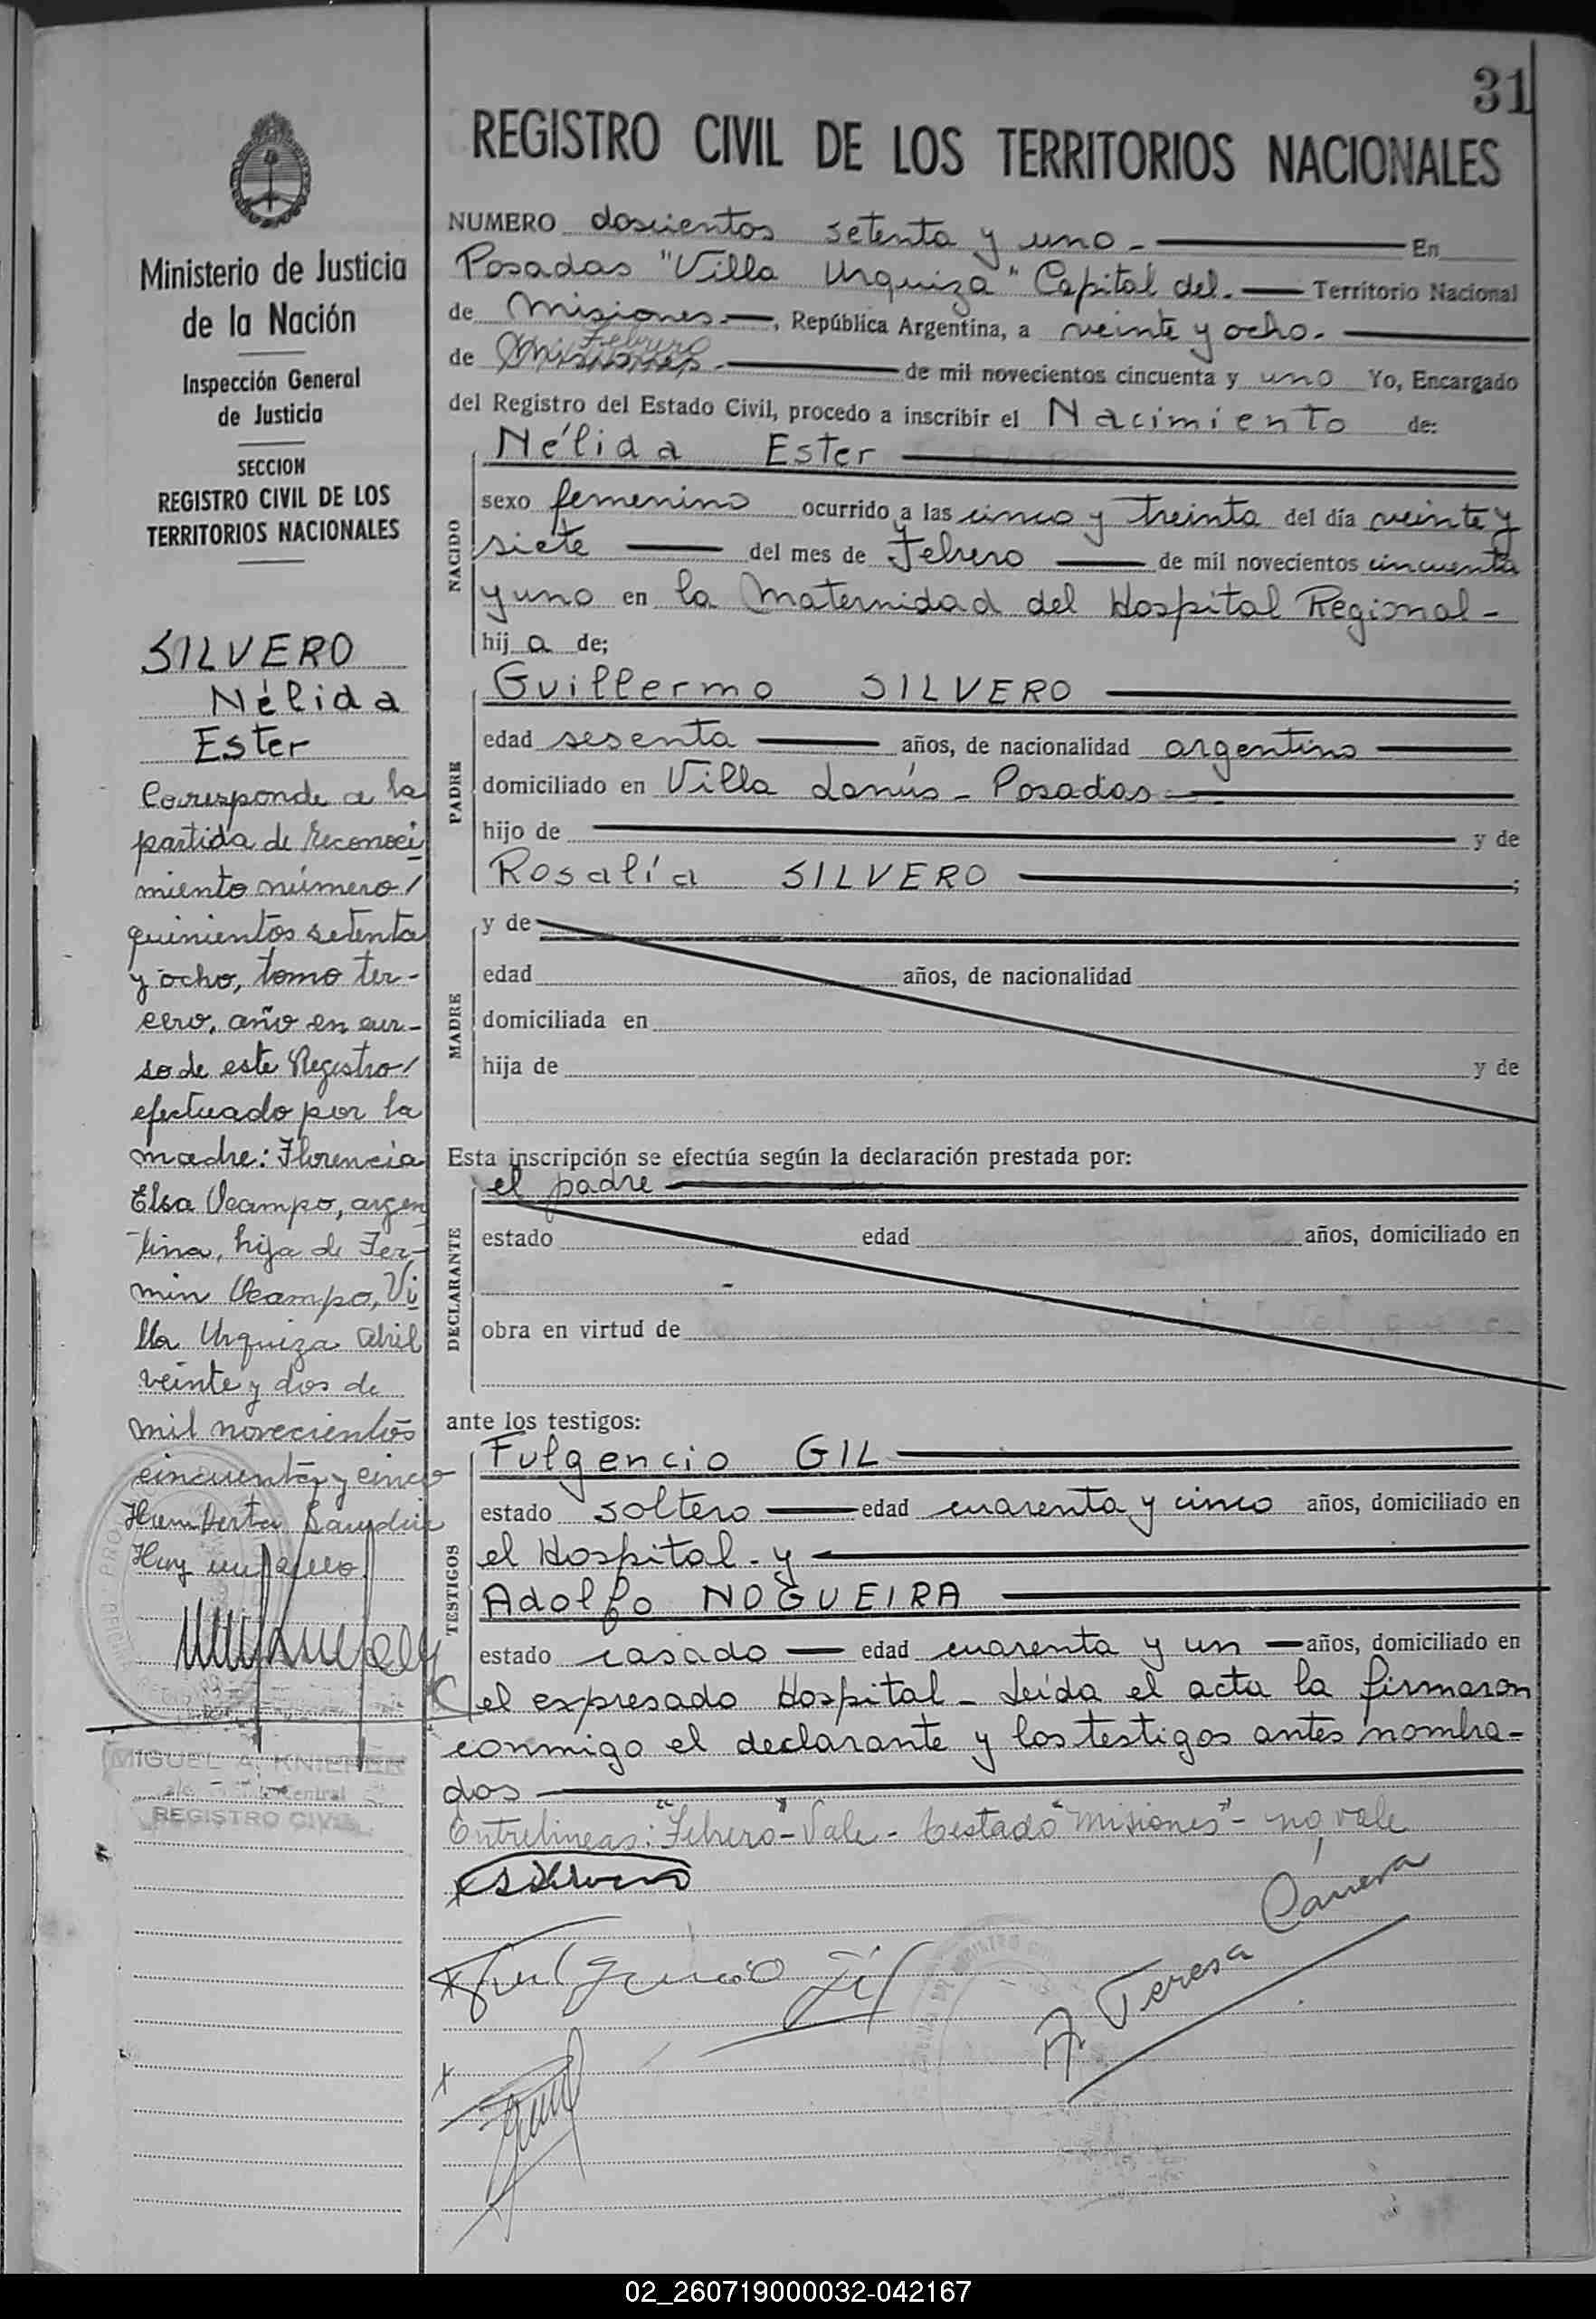 31
REGISTRO CIVIL DE LOS TERRITORIOS NACIONALES
Ministerio de Justicia
de la Nación
Inspección General
de Justicia
SECCION
REGISTRO CIVIL DE LOS
TERRITORIOS NACIONALES
SILVERO
Nélida
Ester
Corresponde a la
partida de reconoci
miento número/
quinientos setenta
y ocho, tomo ter-
cero, año en cur-
so de este Registro/
efectuado por la
madre: Florencia
Elsa Ocampo, argen
tina, hija de Fer-
min Ocampo, Vi
lla Urquiza abril
veinte y dos de
mil novecientos
cincuenta y cinco
MIGUEL A. KNIEPER
Central
REGISTRO CIVIL
NUMERO doscientos setenta y uno - En
Posadas "Villa Urquiza" Capital del. Territorio Nacional
de Misiones. , República Argentina, a veinte y ocho.
Febrero
de Misiones. de mil novecientos cincuenta y uno Yo, Encargado
del Registro del Estado Civil, procedo a inscribir el Nacimiento de:
NACIDO
Nélida Ester
sexo femenino ocurrido a las cinco y treinta del día veinte y
siete del mes de Febrero de mil novecientos cincuenta
y uno en la Maternidad del Hospital Regional -
hij a de;
PADRE
Guillermo SILVERO
edad sesenta años, de nacionalidad argentino
domiciliado en Villa Lanús - Posadas
hijo de y de
Rosalía SILVERO ;
MADRE
y de
edad años, de nacionalidad
domiciliada en
hija de y de
Esta inscripción se efectúa según la declaración prestada por:
DECLARANTE
el padre
estado edad años, domiciliado en
obra en virtud de
ante los testigos:
TESTIGOS
Fulgencio GIL
estado soltero edad cuarenta y cinco años, domiciliado en
el Hospital - y
Adolfo NOGUEIRA
estado casado edad cuarenta y un años, domiciliado en
el expresado Hospital - Leída el acta la firmaron
conmigo el declarante y los testigos antes nombra-
dos
Entrelineas: "Febrero" - Vale - testado "Misiones" - no vale
GSilvero
Fulgencio Gil
A. Teresa Carrera
02_260719000032-042167